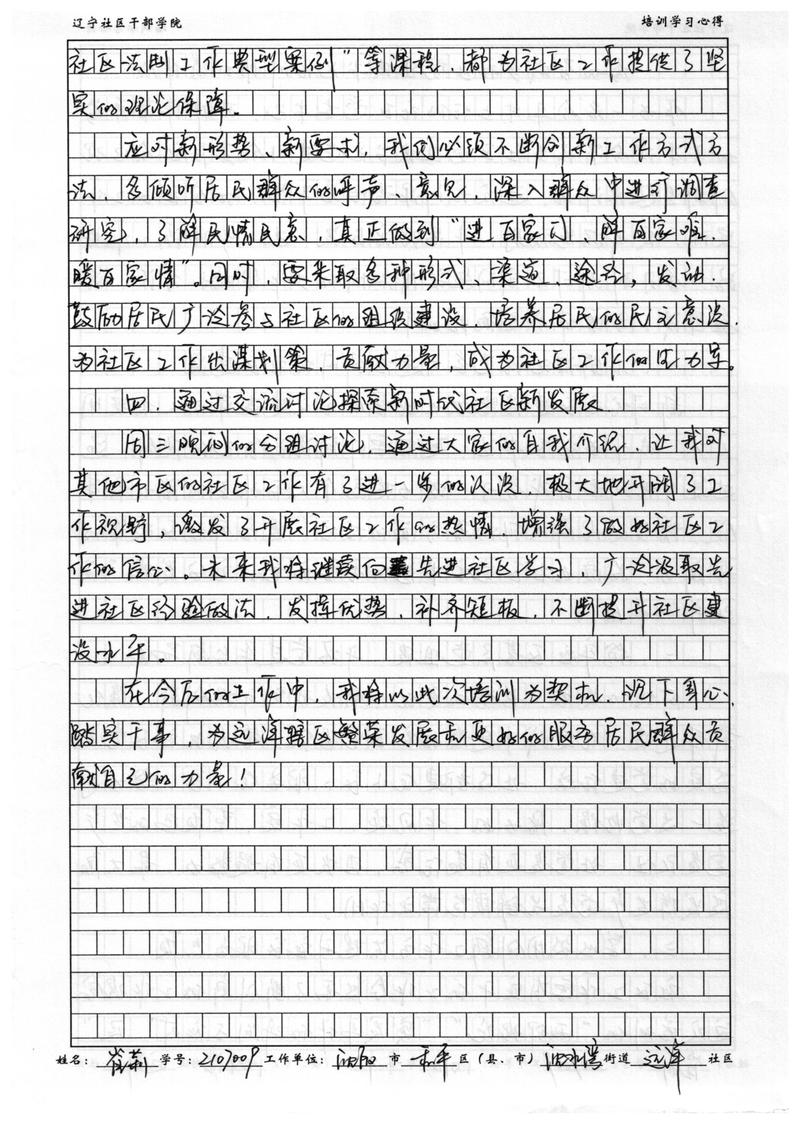 辽宁社区干部学院 培训学习心得
社区法制工作典型案例”等课程，都为社区工作提供了坚
实的理论保障。
应对新形势、新要求，我们必须不断创新工作方式方
法，多倾听居民群众的呼声、意见，深入群众中进行调查
研究，了解民情民意，真正做到“进百家门、解百家难、
暖百家情”。同时，要采取多种形式、渠道、途径，发动、
鼓励居民广泛参与社区的组织建设，培养居民的民主意识，
为社区工作出谋划策，贡献力量，成为社区工作的生力军。
四、通过交流讨论探索新时代社区新发展
周三晚间的分组讨论，通过大家的自我介绍，让我对
其他市区的社区工作有了进一步的认识，极大地开阔了工
作视野，激发了开展社区工作的热情，增强了做好社区工
作的信心。未来我将继续向先进社区学习，广泛汲取先
进社区经验做法，发挥优势，补齐短板，不断提升社区建
设水平。
在今后的工作中，我将以此次培训为契机，沉下身心，
踏实干事，为远洋辖区繁荣发展和更好的服务居民群众贡
献自己的力量！
姓名：崔莉 学号：2107009 工作单位：沈阳 市 和平 区（县、市） 沈水湾 街道 远洋 社区